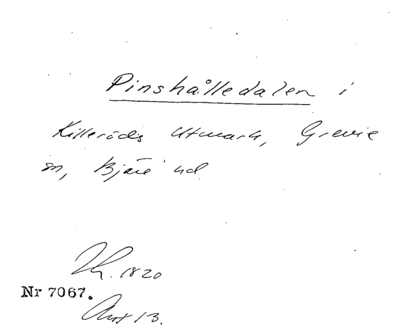 Pinshålledalen i
Killeröds Utmark, Grevie
sn, Bjäre hd.
1820
Nr 7067.
Akt 13.